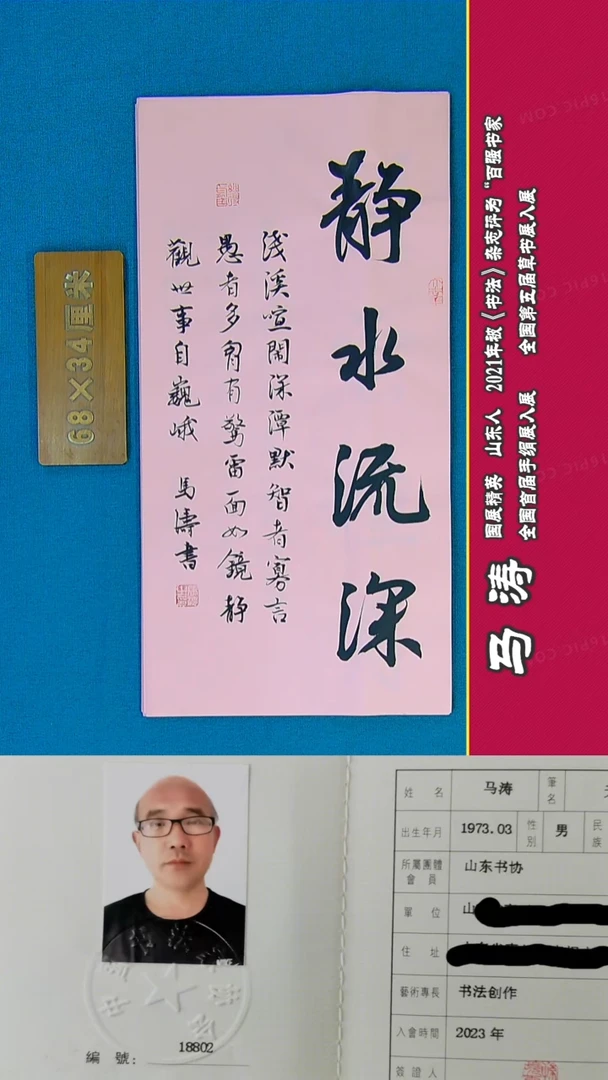 静水流深
浅溪喧闹深潭默智者寡言
愚者多胸有惊雷面如镜静
觀世事自巍峨 馬濤書
68×34厘米
马涛
国展精英 山东人 2021年被《书法》杂志评为“百强书家
全国首届手绢展入展 全国第五届草书展入展
姓名 马涛 筆名
出生年月 1973.03 性別 男 民族
所屬團體會員 山东书协
單位 山
住址
藝術專長 书法创作
入會時間 2023 年
簽證人
編號: 18802